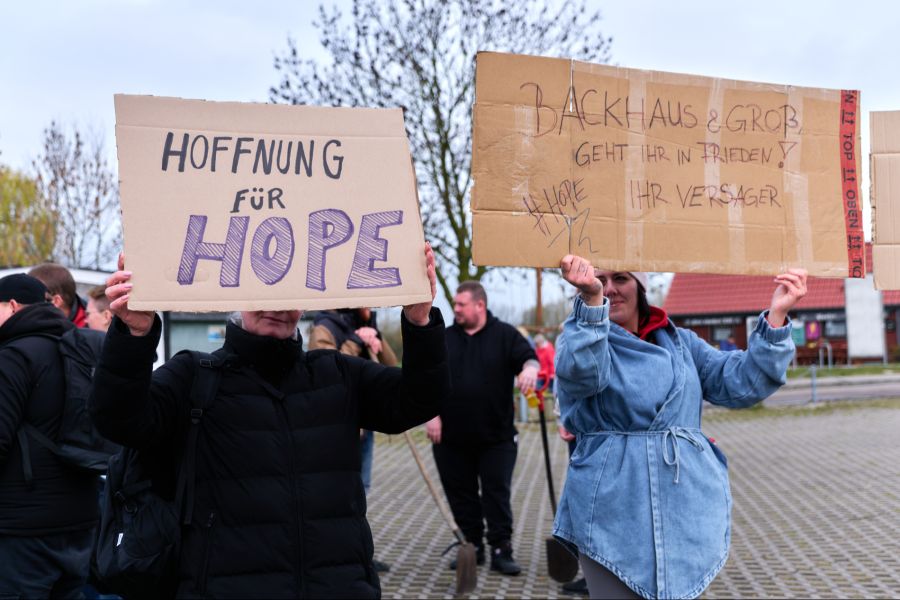 HOFFNUNG
FÜR
HOPE
BACKHAUS & GROß,
GEHT IHR IN FRIEDEN!
#HOPE IHR VERSAGER
TOP
OBEN